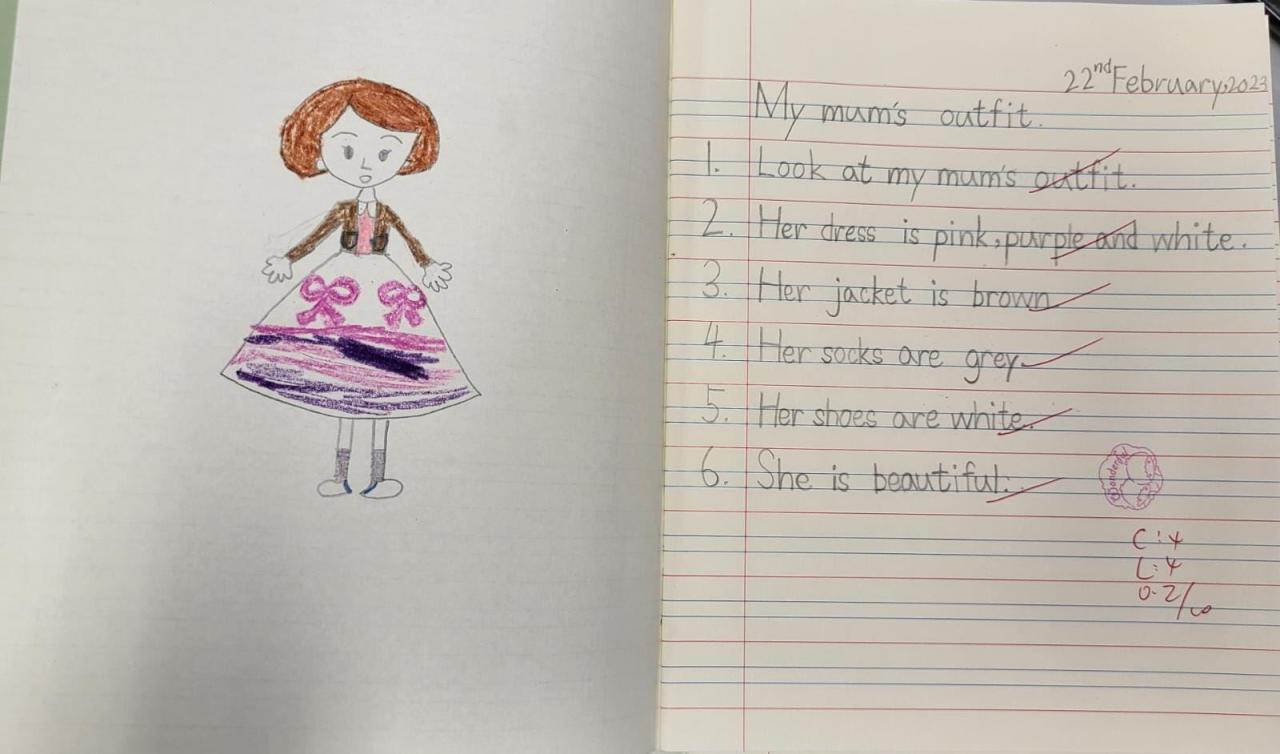 22nd February,2023
My mum's outfit.
1. Look at my mum's outfit.
2. Her dress is pink, purple and white.
3. Her jacket is brown
4. Her socks are grey.
5. Her shoes are white.
6. She is beautiful.
C:4
L:4
O:2/10